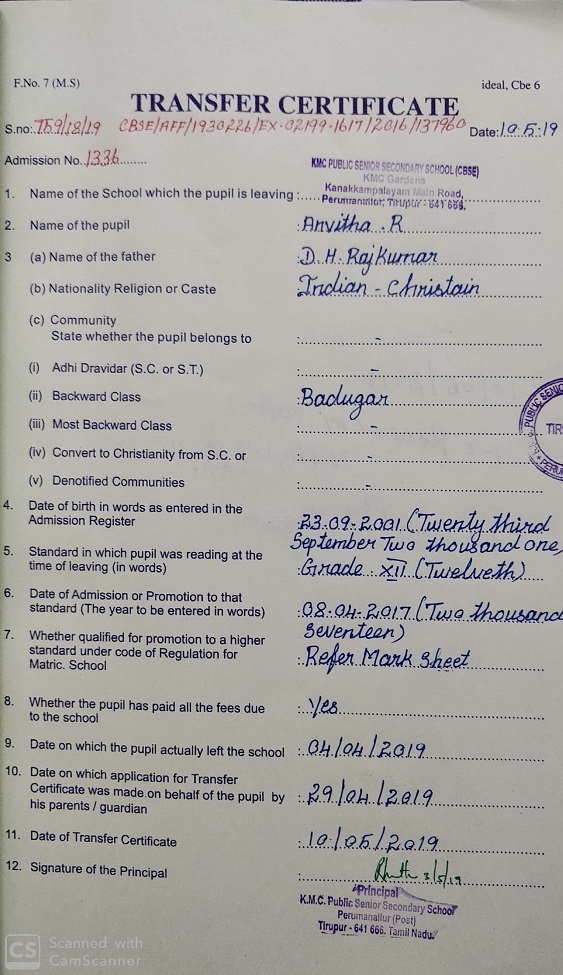 F.No. 7 (M.S)
ideal, Cbe 6
TRANSFER CERTIFICATE
S.no: 759/18/19 CBSE/AFF/1930226/EX-02199-1617/2016/137960 Date: 10.5.19
Admission No. 1336
KMC PUBLIC SENIOR SECONDARY SCHOOL (CBSE)
KMC Gardens
1. Name of the School which the pupil is leaving : Kanakkampalayam Main Road,
Perumanallur, Tirupur - 641 666.
2. Name of the pupil : Anvitha .R
3 (a) Name of the father : D.H. RajKumar
(b) Nationality Religion or Caste : Indian - Christain
(c) Community
State whether the pupil belongs to : -
(i) Adhi Dravidar (S.C. or S.T.) : -
(ii) Backward Class : Badugar
(iii) Most Backward Class : -
(iv) Convert to Christianity from S.C. or : -
(v) Denotified Communities : -
PUBLIC SENIOR
TIR
PERUM
4. Date of birth in words as entered in the
Admission Register : 23.09.2001 (Twenty third
September Two thousand one)
5. Standard in which pupil was reading at the
time of leaving (in words) : Grade XII (Twelveth)
6. Date of Admission or Promotion to that
standard (The year to be entered in words) : 08.04.2017 (Two thousand
Seventeen)
7. Whether qualified for promotion to a higher
standard under code of Regulation for
Matric. School : Refer Mark Sheet
8. Whether the pupil has paid all the fees due
to the school : Yes
9. Date on which the pupil actually left the school : 04/04/2019
10. Date on which application for Transfer
Certificate was made on behalf of the pupil by
his parents / guardian : 29/04/2019
11. Date of Transfer Certificate : 10/05/2019
12. Signature of the Principal : 3/5/19
Principal
K.M.C. Public Senior Secondary School
Perumanallur (Post)
Tirupur - 641 666. Tamil Nadu.
CS Scanned with
CamScanner